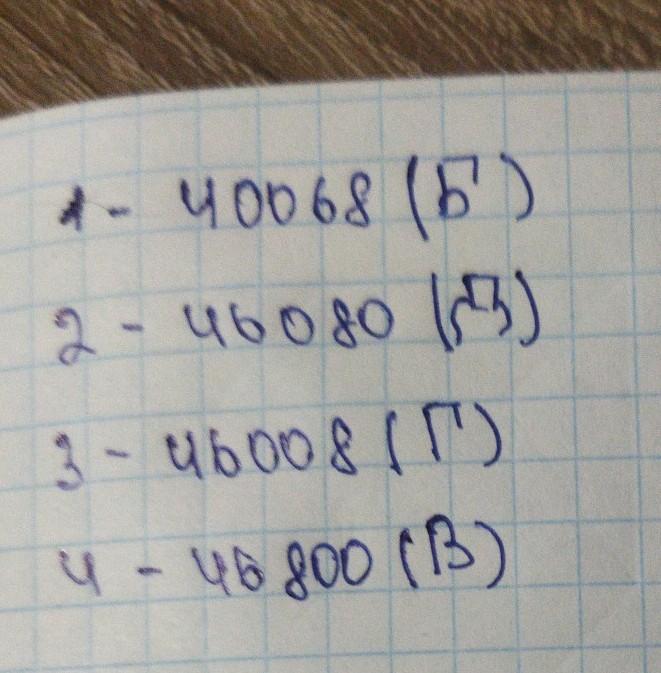 1 - 40068 (Б)
2 - 46080 (Д)
3 - 46008 (Г)
4 - 46800 (В)